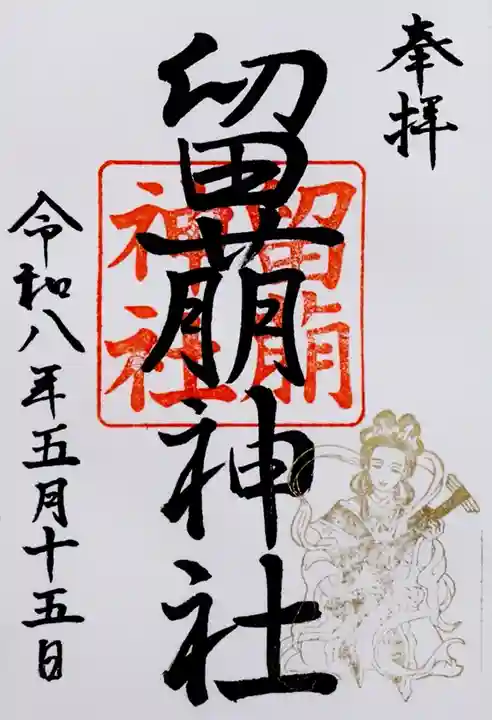 奉拝
留萠神社
留萠
神社
令和八年五月十五日